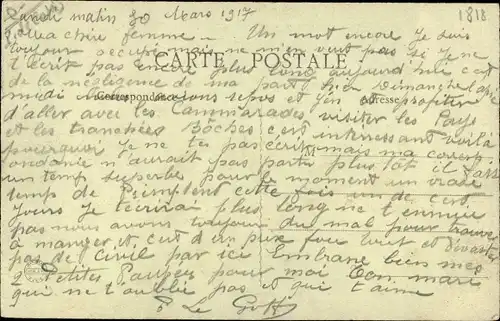 Lundi matin 30 Mars 1917
1818
Ma chère femme - Un mot encore je suis
toujour occupé mais ne m'en veut pas si je ne
t'écrit pas encore plus long aujourd'hui c'est
CARTE POSTALE
de la négligence de ma part hier Dimanche l'après
Correspondance
Adresse
midi nous avions repos et j'en profiter
d'aller avec les Cammarades visiter les Pays
et les tranchées Boches c'est interressant voilà
pourquoi je ne tes pas écris mais ma corresp-
ondance n'aurait pas partie plus tôt il fait
un temp superbe pour le moment un vrai
temp de Printemp cette fois un de ces
jours je t'écrirai plus long ne t'ennuie
pas nous avons toujour du mal pour trouver
à manger et c'est d'un prix fou tout et
pas de civil par ici Embrasse bien mes
2 Petites Poupées pour moi Ton mari
qui ne t'oublie pas et qui t'aime
Le